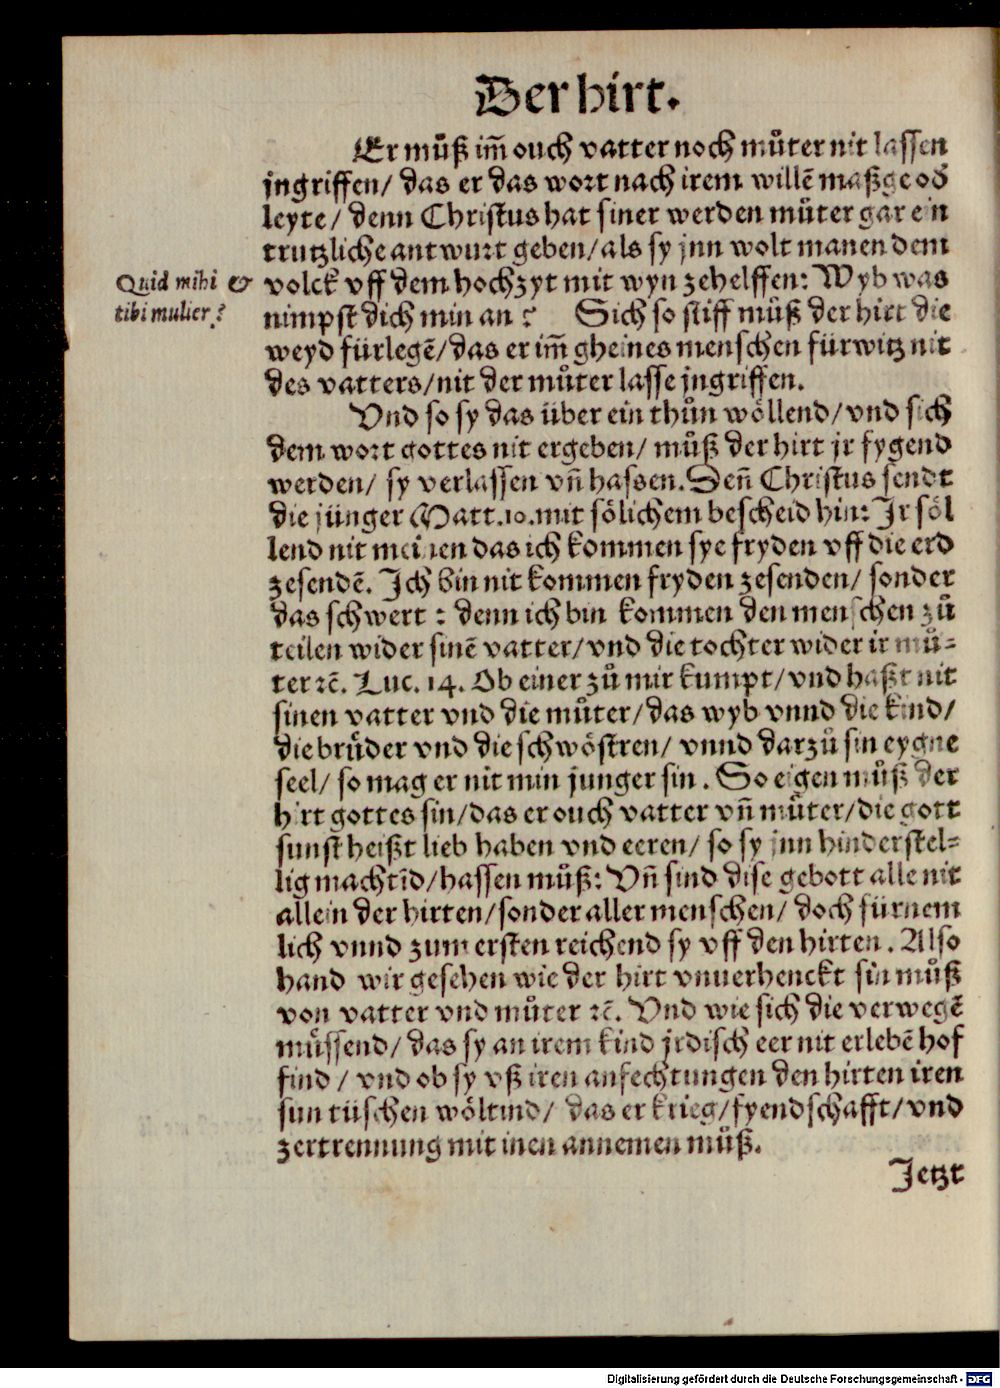 Der hirt.
Er můß im̃ ouch vatter noch můter nit lassen
jngriffen/ das er das wort nach irem willẽ maßge od
leyte/ denn Christus hat siner werden můter gar ein
trutzliche antwurt geben/als sy jnn wolt manen dem
Quid mihi &
tibi mulier?
volck vff dem hochzyt mit wyn zehelffen: Wyb was
nimpst dich min an? Sich so stiff můß der hirt die
weyd fürlegẽ/das er im̃ gheines menschen fürwitz nit
des vatters/nit der můter lasse jngriffen.
Vnd so sy das über ein thůn wöllend/vnd sich
dem wort gottes nit ergeben/ můß der hirt jr fygend
werden/ sy verlassen vñ hassen. Deñ Christus sendt
die jünger Matt.10.mit sölichem bescheid hin: Jr söl
lend nit meinen das ich kommen sye fryden vff die erd
zesendẽ. Jch bin nit kommen fryden zesenden/ sonder
das schwert: denn ich bin kommen den menschen zů
teilen wider sinẽ vatter/vnd die tochter wider ir mů-
ter ꝛc̃. Luc. 14. Ob einer zů mir kumpt/vnd haßt nit
sinen vatter vnd die můter/das wyb vnnd die kind/
die brüder vnd die schwöstren/ vnnd darzů sin eygne
seel/ so mag er nit min junger sin. So eigen můß der
hirt gottes sin/das er ouch vatter vñ můter/die gott
sunst heißt lieb haben vnd eeren/ so sy jnn hinderstel-
lig machtĩd/hassen můß: Vñ sind dise gebott alle nit
allein der hirten/sonder aller menschen/ doch fürnem
lich vnnd zum ersten reichend sy vff den hirten. Also
hand wir gesehen wie der hirt vnuerhenckt sin můß
von vatter vnd můter ꝛc̃. Vnd wie sich die verwegẽ
müssend/ das sy an irem kind jrdisch eer nit erlebẽ hof
find/ vnd ob sy vß iren anfechtungen den hirten iren
sun tüschen wöltind/ das er krieg/fyendschafft/vnd
zertrennung mit inen annemen můß.
Jetzt
Digitalisierung gefördert durch die Deutsche Forschungsgemeinschaft - DFG